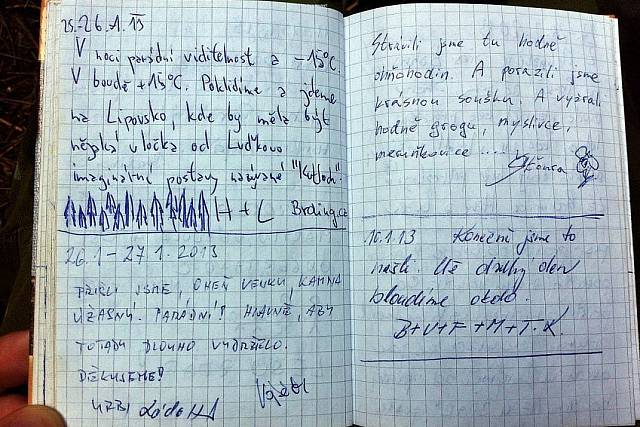 25.-26.1.13
V noci parádní viditelnost a -15°C.
V boudě +15°C. Poklidíme a jdeme
na Lipovsko, kde by měla být
nějaká vločka od Luďkovo
imaginární postavy nazývané "Kutloch".
H + L Brding.cz
26.1-27.1.2013
PŘIŠLI JSME, OHEŇ VENKU, KAMNA
ÚŽASNÝ. PARÁDNÍ! HLAVNĚ, ABY
TOTADY DLOUHO VYDRŽELO.
DĚKUJEME!
Strávili jsme tu hodně
ohňohodin. A porazili jsme
krásnou soušku. A vyzrali
hodně grogu, myslivce,
meruňkovice ....
10.1.13 Konečně jsme to
našli. Už druhý den
bloudíme okolo.
B+V+F+M+T.K.